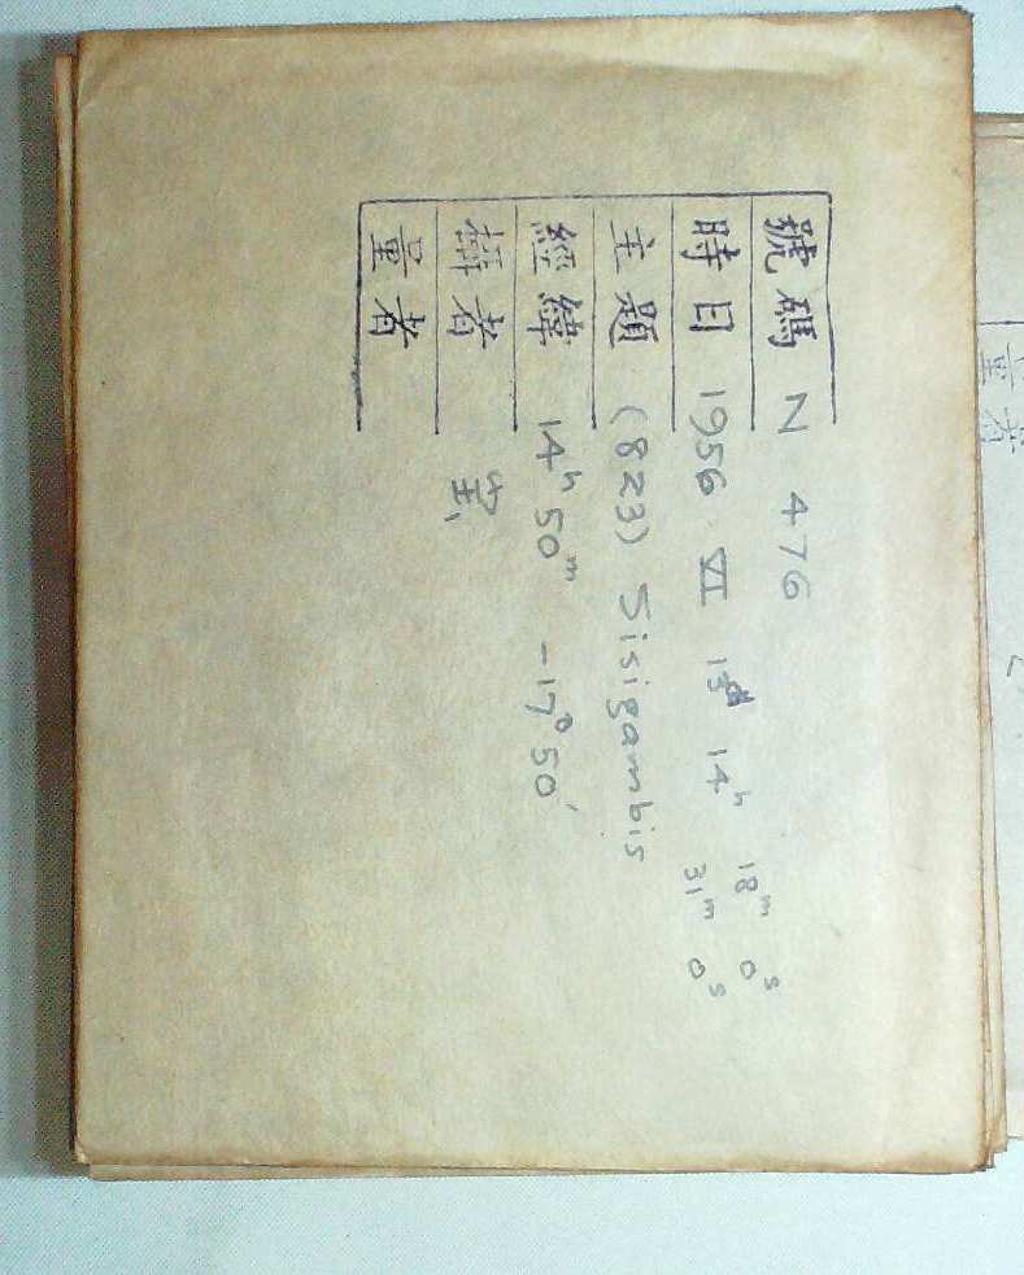 號碼 N 476
時日 1956 VI 13d 14h 18m 0s
31m 0s
主題 (823) Sisigambis
經緯 14h 50m -17° 50′
攝者
量者
量者